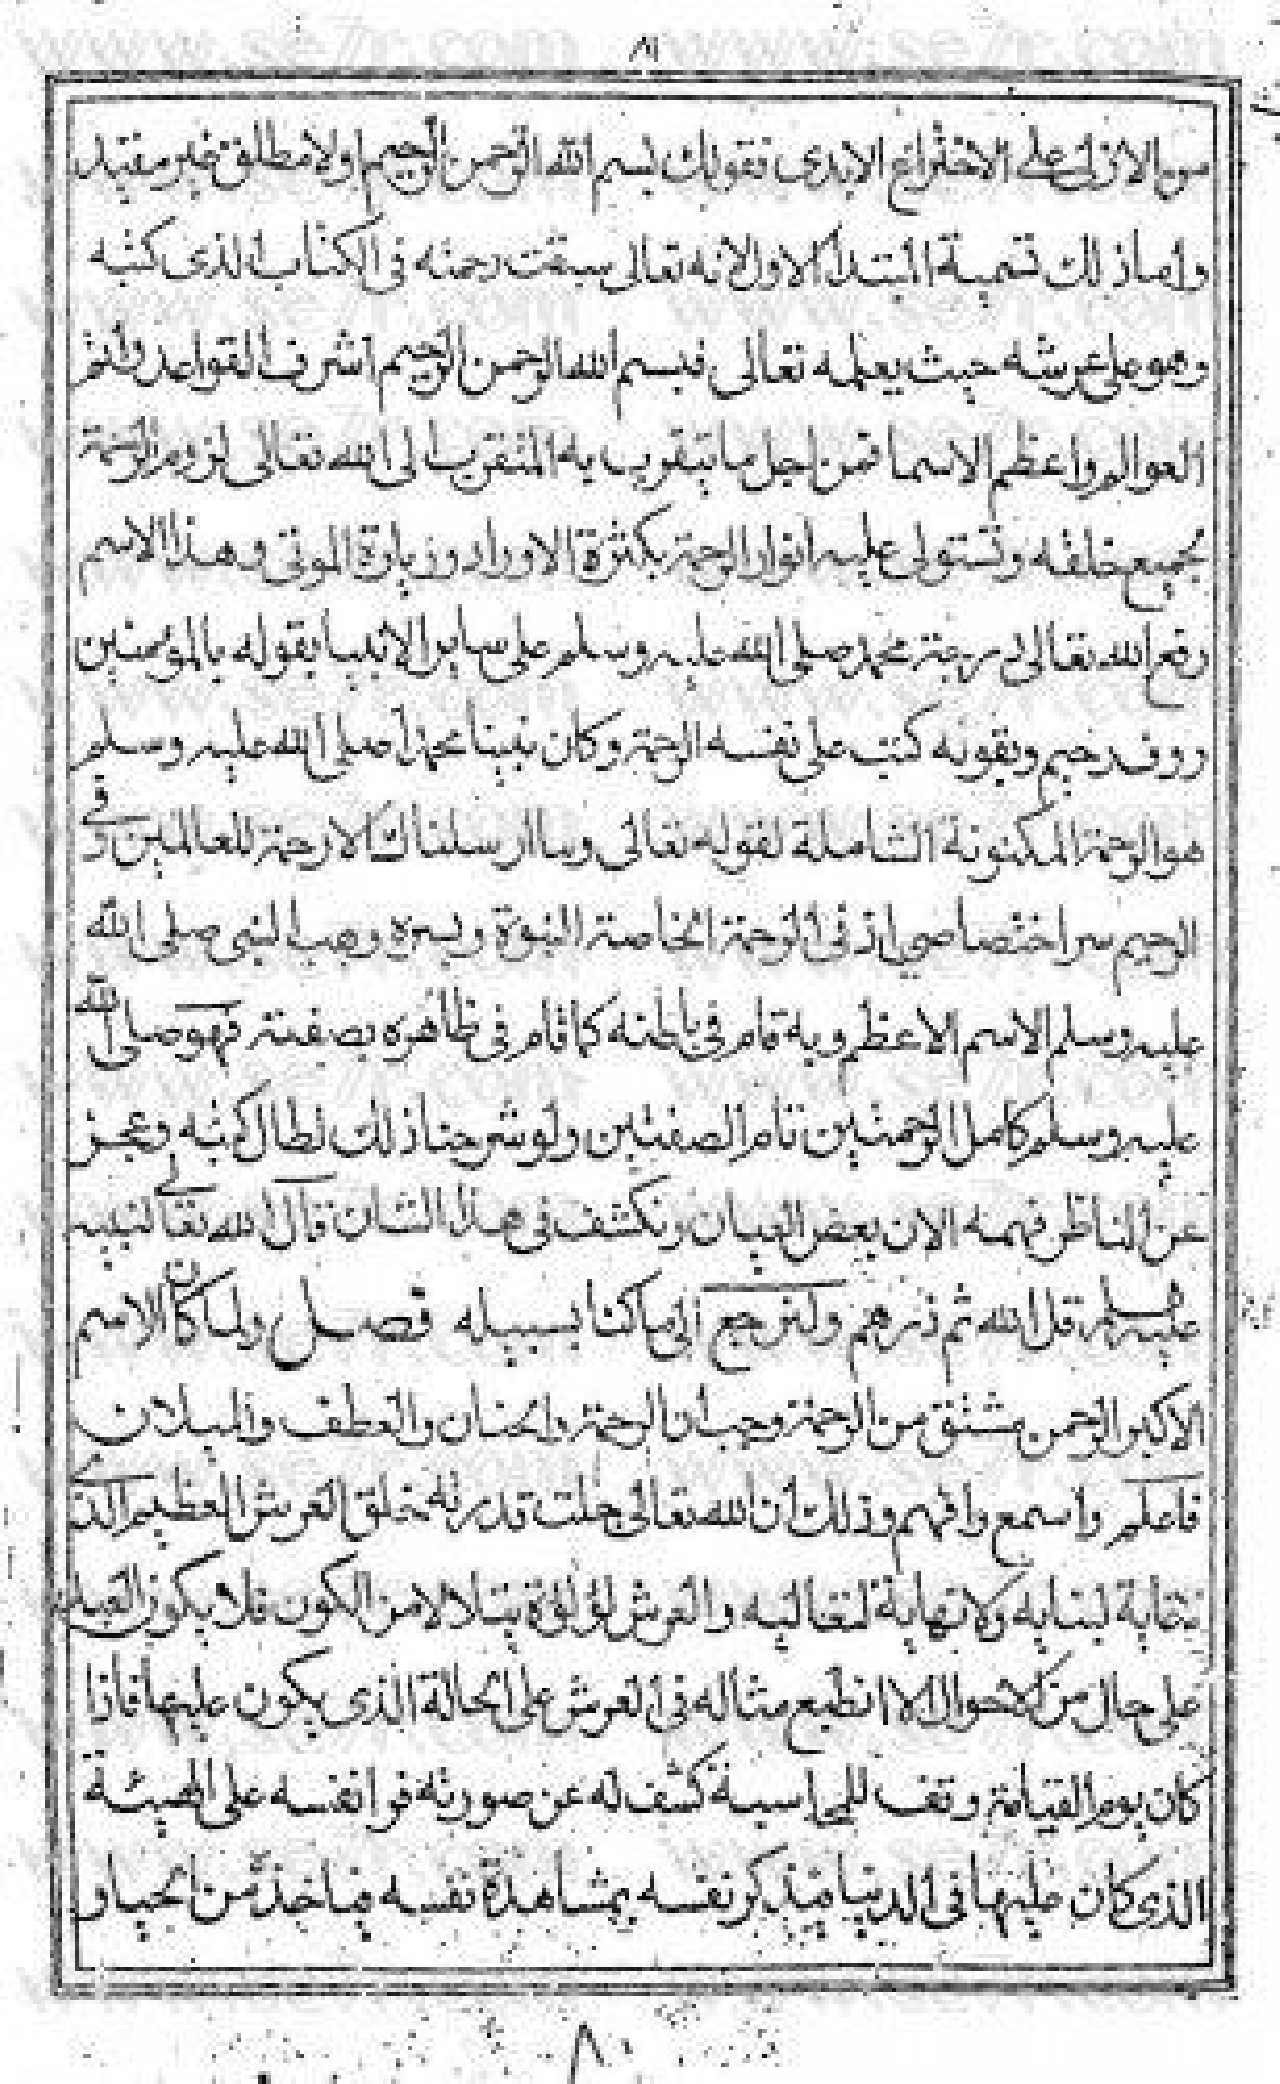 ٨١
من الازلى على الاختراع الابدى فقولك بسم الله الرحمن الرحيم اولا مطلق غير مقيد
واما ذلك تسمية المبتدا كالاول لانه تعالى سبقت رحمته فى الكتاب الذى كتبه
وهو على عرشه حيث يعلمه تعالى فبسم الله الرحمن الرحيم اشرف القواعد وافخر
العوالم واعظم الاسما فمن اجل ما يتقرب به المتقرب الى الله تعالى لزوم الرحمة
بجميع خلقه وتستولى عليه انوار الرحمة بكثرة الاوراد وزيارة الموتى وهذا الاسم
رفع الله تعالى به درجة محمد صلى الله عليه وسلم على ساير الانبيا بقوله بالمومنين
روف رحيم وبقوله كتب على نفسه الرحمة وكان نبينا محمدا صلى الله عليه وسلم
هو الرحمة المكنونة الشاملة لقوله تعالى وما ارسلناك الا رحمة للعالمين وفى
الرحيم سر اختصاصى اذ فى الرحمة الخاصة النبوة وبسره وهب النبى صلى الله
عليه وسلم الاسم الاعظم وبه قام فى باطنه كما قام فى ظاهره بصفته فهو صلى الله
عليه وسلم كامل الرحمتين تام الصفتين ولو شرحنا ذلك لطال كتبه وعجز
عن الناظر فهمه الان بعض العيان ونكشف فى هذا الشان قال الله تعالى لنبيه
عليه وسلم قل الله ثم ذرهم ولنرجع الى ما كنا بسبيله فصل ولما كان الاسم
الاكبر الرحمن مشتق من الرحمة وجب ان الرحمة والحنان والعطف والميلان
فاعلم واسمع وافهم وذلك ان الله تعالى جلت قدرته خلق العرش العظيم الذى
نهاية لبنايه ولا نهاية لتعاليه والعرش لؤلؤة يتلالا من الكون فلا يكون العبد
على حال من الاحوال الا انطبع مثاله فى العرش على الحالة الذى يكون عليها فاذا
كان يوم القيامة وقف للمحاسبة كشف له عن صورته فرا نفسه على الهيئة
الذى كان عليها فى الدنيا فيذكر نفسه بمشاهدة نفسه فياخذه من الحيا و
٨٠